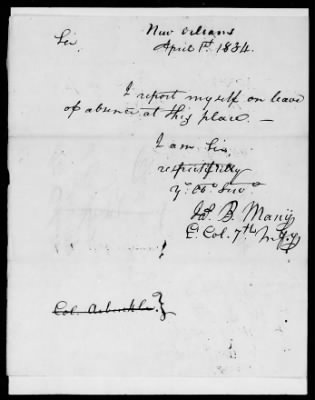 New Orleans
Sir, April 1st 1834.
I report myself on leave
of absence at this place. —
I am Sir,
respectfully
Yr. Obt. Servt.
Jas. B. Many
Lt. Col. 7th Infy
Col. Arbuckle. }